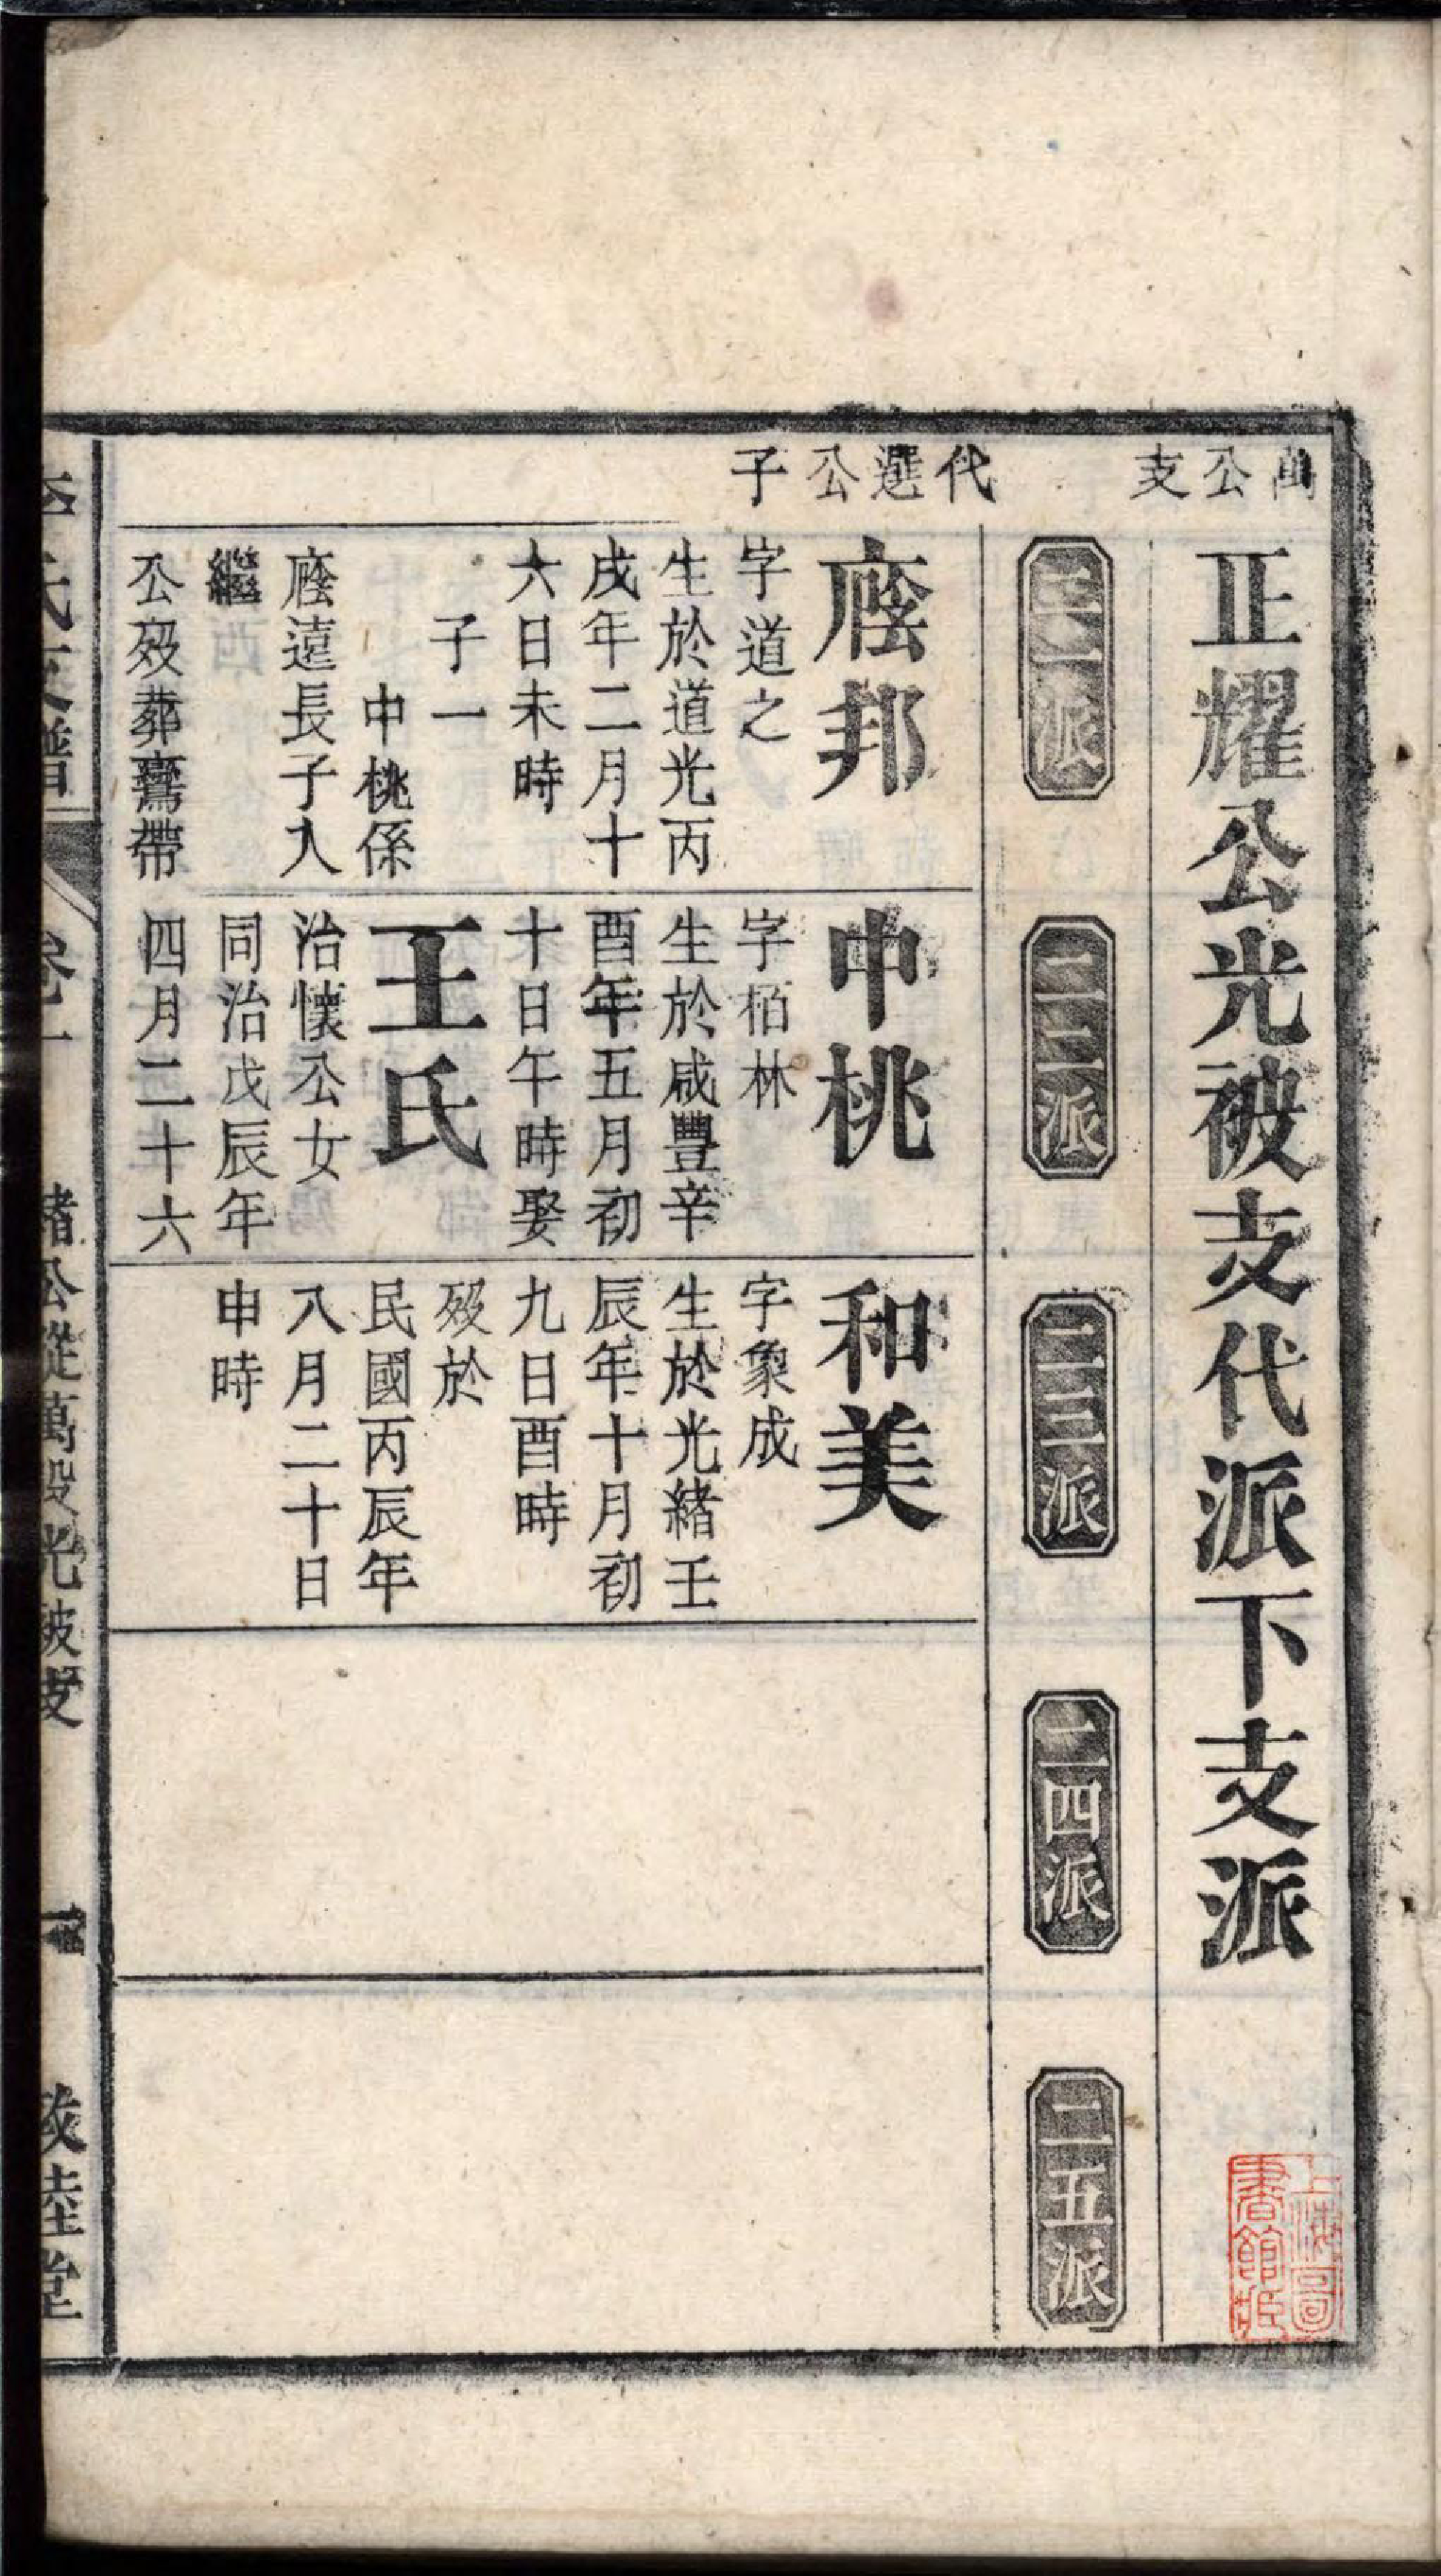 萬公支
正耀公光被支代派下支派
二一派
二二派
二三派
二四派
二五派
代選公子
廕邦
字道之
生於道光丙
戌年二月十
六日未時
子一
中桃係
廕遠長子入
繼
公歿葬鴦帶
中桃
字栢林
生於咸豐辛
酉年五月初
十日午時娶
王氏
治懷公女
同治戊辰年
四月二十六
和美
字象成
生於光緒壬
辰年十月初
九日酉時
歿於
民國丙辰年
八月二十日
申時
李氏支譜
卷一
緒公從萬股光被支
一
敦陸堂
上海圖
書館藏